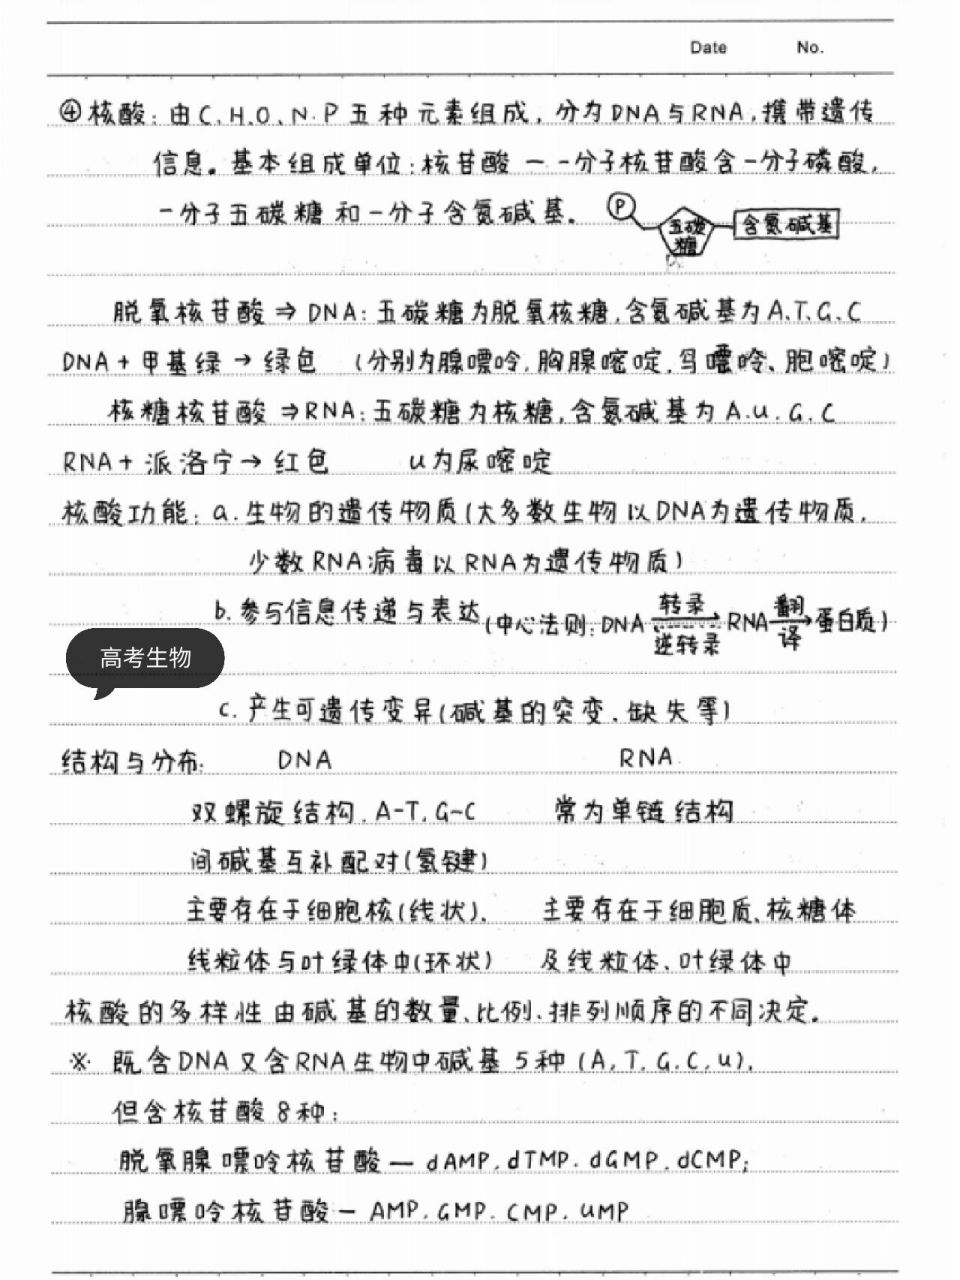 Date No.
④核酸:由C、H、O、N、P五种元素组成,分为DNA与RNA,携带遗传
信息。基本组成单位:核苷酸 — 一分子核苷酸含一分子磷酸,
一分子五碳糖和一分子含氮碱基。 P 五碳糖 含氮碱基
脱氧核苷酸⇒DNA:五碳糖为脱氧核糖,含氮碱基为A、T、G、C
DNA+甲基绿→绿色 (分别为腺嘌呤,胸腺嘧啶,鸟嘌呤、胞嘧啶)
核糖核苷酸⇒RNA:五碳糖为核糖,含氮碱基为A.u.G.C
RNA+派洛宁→红色 u为尿嘧啶
核酸功能:a.生物的遗传物质(大多数生物以DNA为遗传物质,
少数RNA病毒以RNA为遗传物质)
b.参与信息传递与表达(中心法则:DNA 转录 逆转录 RNA 翻译 蛋白质)
高考生物
c.产生可遗传变异(碱基的突变、缺失等)
结构与分布: DNA RNA
双螺旋结构,A-T,G-C 常为单链结构
间碱基互补配对(氢键)
主要存在于细胞核(线状)、 主要存在于细胞质、核糖体
线粒体与叶绿体中(环状) 及线粒体、叶绿体中
核酸的多样性由碱基的数量、比例、排列顺序的不同决定。
※ 既含DNA又含RNA生物中碱基5种(A,T,G,C,u),
但含核苷酸8种:
脱氧腺嘌呤核苷酸—dAMP,dTMP,dGMP,dCMP;
腺嘌呤核苷酸—AMP,GMP,CMP,uMP